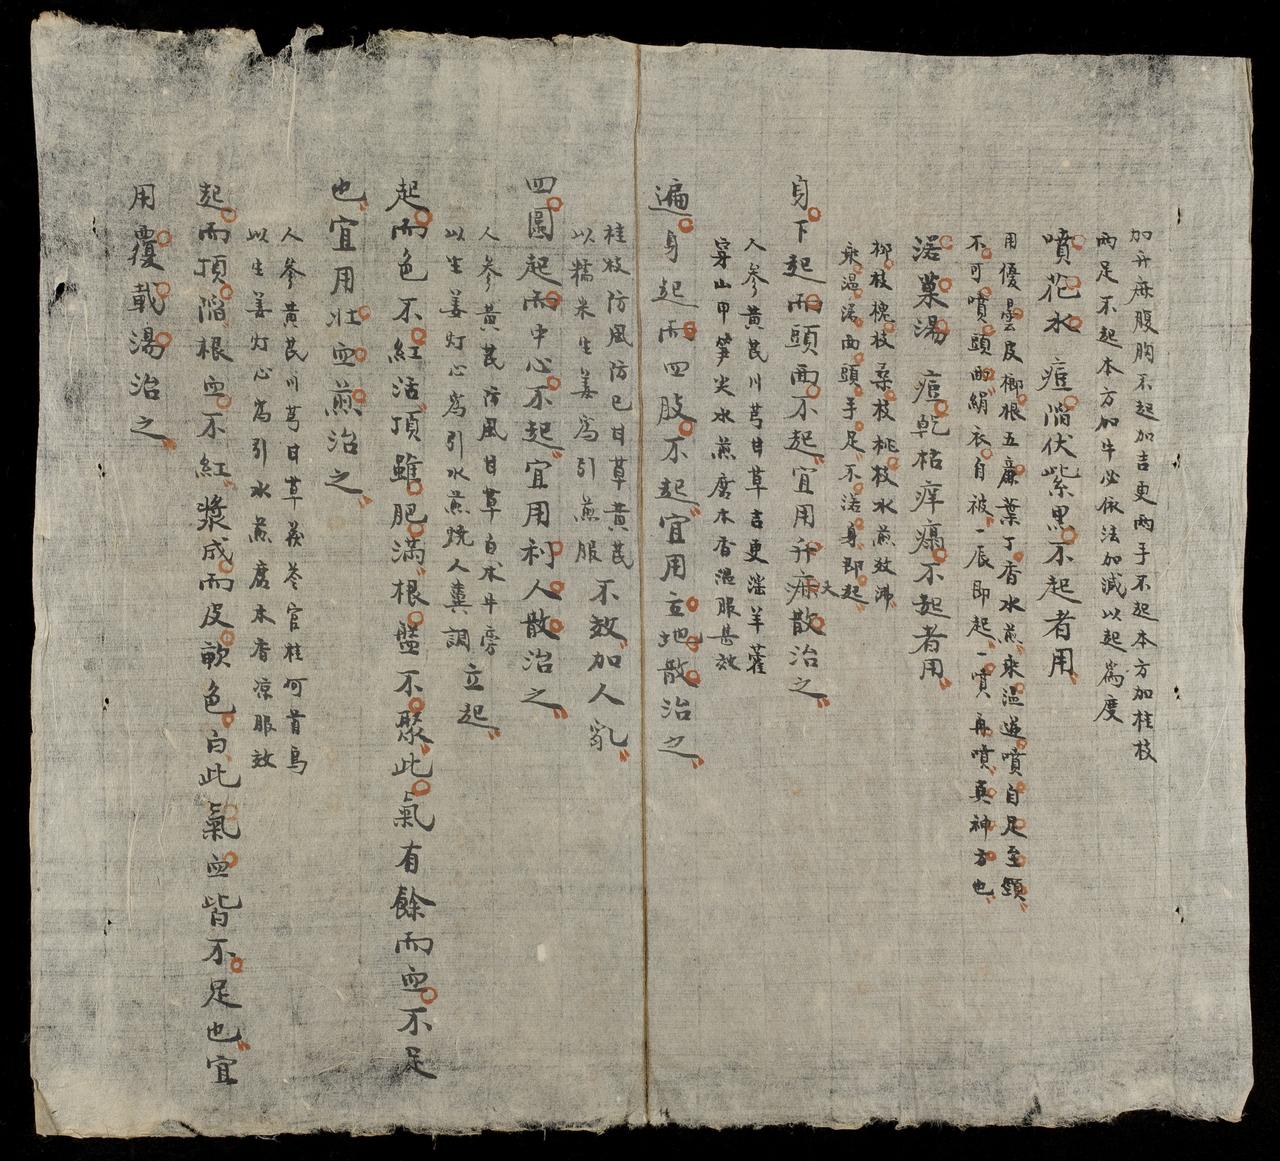 加升麻腹胸不起加吉更両手不起本方加桂枝
両足不起本方加牛必依法加減以起為度
噴花水痘陷伏紫黒不起者用
用優曇皮柳根五蔴葉丁香水煎乘温遍噴自足至頸
不可噴頭面絹衣自被一辰即起一噴再噴真神方也
浴藁湯痘乾枯痒瘍不起者用
柳枝槐枝桑枝桃枝水煎数沸
乘温浴面頭手足不浴身即起
身下起而頭面不起宜用升麻散治之
人参黄芪川芎甘草吉更滛羊藿
穿山甲笋尖水煎磨木香温服甚效
遍身起而四肢不起宜用立地散治之
桂枝防風防已甘草黄芪不效加人乳
以糯米生姜為引煎服
四圍起而中心不起宜用利人散治之
人参黄芪防風甘草白术牛旁立起
以生姜灯心為引水煎燒人糞調
起而色不紅活頂雖肥滿根盤不聚此氣有餘而血不足
也宜用壮血煎治之
人参黄芪川芎甘草茯苓官桂何首烏
以生姜灯心為引水煎磨木香凉服效
起而頂陷根血不紅漿成而皮軟色白此氣血皆不足也宜
用覆載湯治之